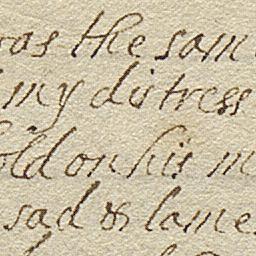 was the sam
my distress
old on his m
sad & lame